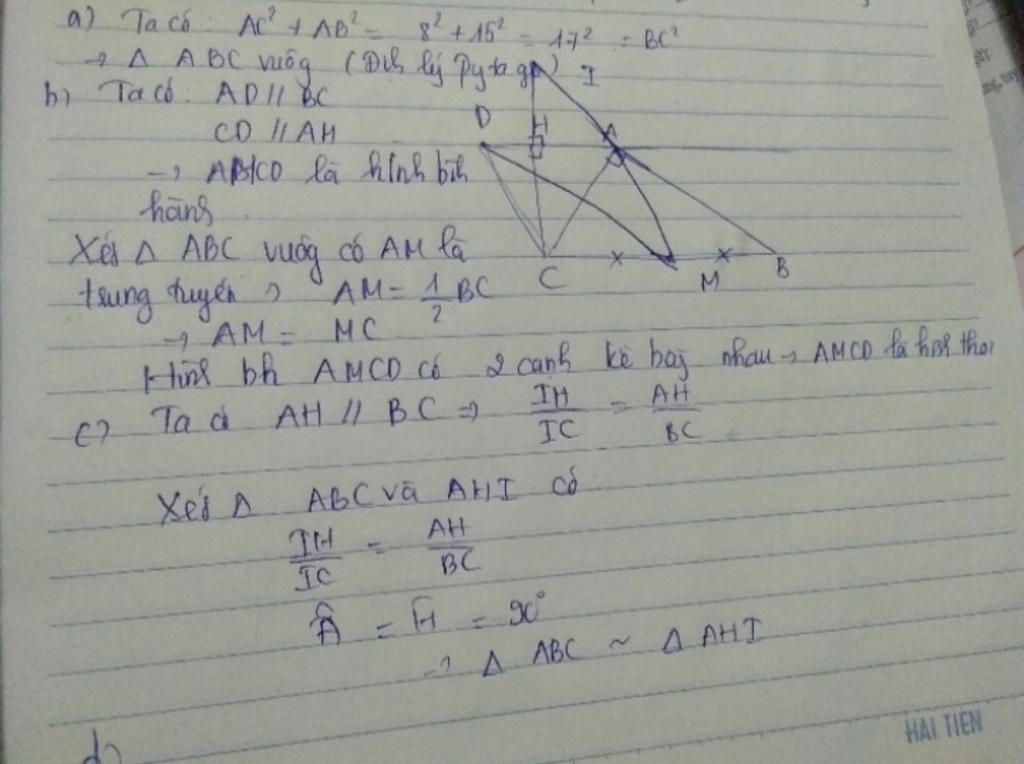 a) Ta có: AC² + AB² = 8² + 15² = 17² = BC²
→ Δ ABC vuôg (Đih lý Pytago)
b) Ta có: AD // BC
CD // AH
→ là hình bìh
hàng.
Xét Δ ABC vuôg có AM là
trung tuyến → AM = 1/2 BC
→ AM = MC
Hình bh AMCD có 2 cạnh kề bằg nhau → AMCD là hình thoi
c) Ta có AH // BC => IH/IC = AH/BC
Xét Δ ABC và AHI có
IH/IC = AH/BC
Â = Ĥ = 90°
→ Δ ABC ~ Δ AHI
d)
I
D H A
C M B
HAI TIEN